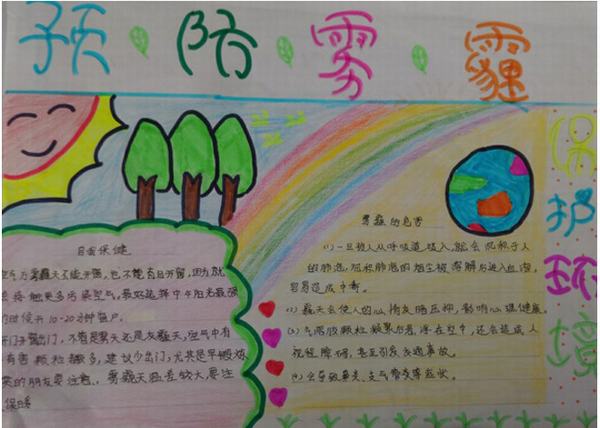 预防雾霾
保护环境
自我保健
雾霾天不能开窗,也不能
多污染空气,最好选择中午阳光最强
的时候开10-20分钟窗户。
出门,不管是雾天还是灰霾天,空气中有
有害颗粒增多,建议少出门,尤其是平时
的朋友要注意。雾霾天温差较大,要注
保暖
雾霾的危害
(1)一旦被人从呼吸道吸入,就会沉积于人
的肺泡,沉积肺泡的烟尘被溶解后进入血液,
容易造成中毒。
霾天会使人的心情灰暗压抑,影响心理健康。
气溶胶颗粒 浮在空中,还会造成人
视程障碍,甚至引发交通事故。
会导致鼻炎、支气管炎等症状。